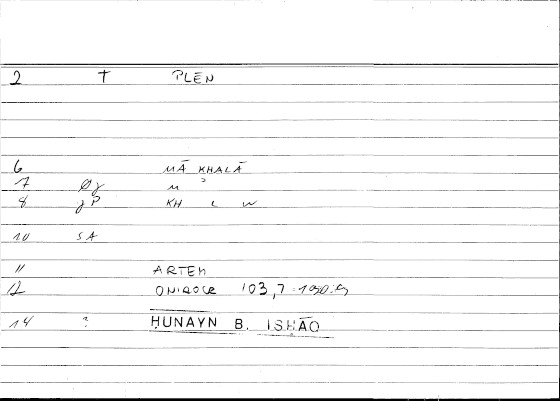 2 T PLEN
6 MĀ KHALĀ
7 Øj M ʾ
8 jP KH L W
10 SA
11 ARTEM
12 ONIROCR 103,7
14 ? HUNAYN B. ISHĀQ